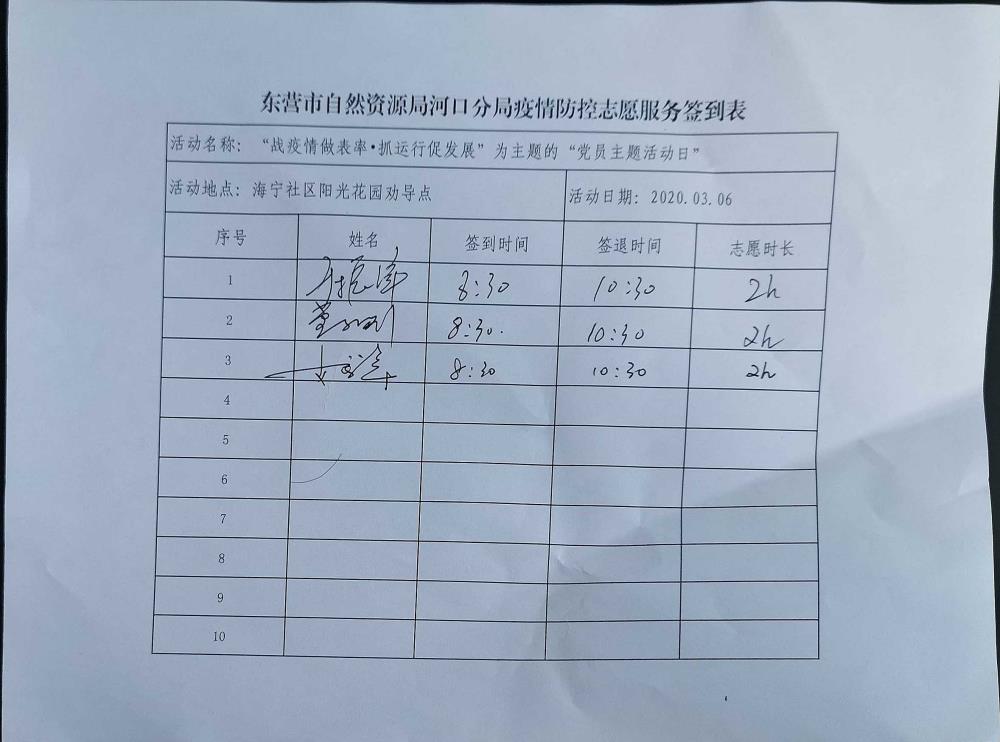 东营市自然资源局河口分局疫情防控志愿服务签到表
活动名称：“战疫情做表率·抓运行促发展”为主题的“党员主题活动日”
活动地点：海宁社区阳光花园劝导点 活动日期：2020.03.06
序号 姓名 签到时间 签退时间 志愿时长
1 8:30 10:30 2h
2 8:30. 10:30 2h
3 8:30 10:30 2h
4
5
6
7
8
9
10